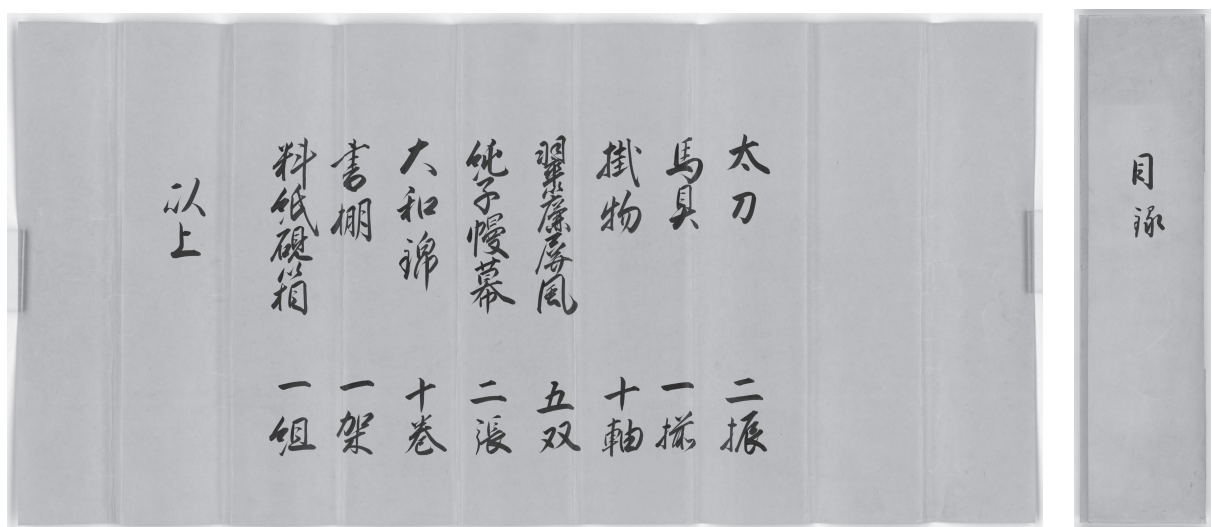 目録
太刀 二振
馬具 一揃
掛物 十軸
翠簾屏風 五双
純子幔幕 二張
大和錦 十巻
書棚 一架
料紙硯箱 一組
以上